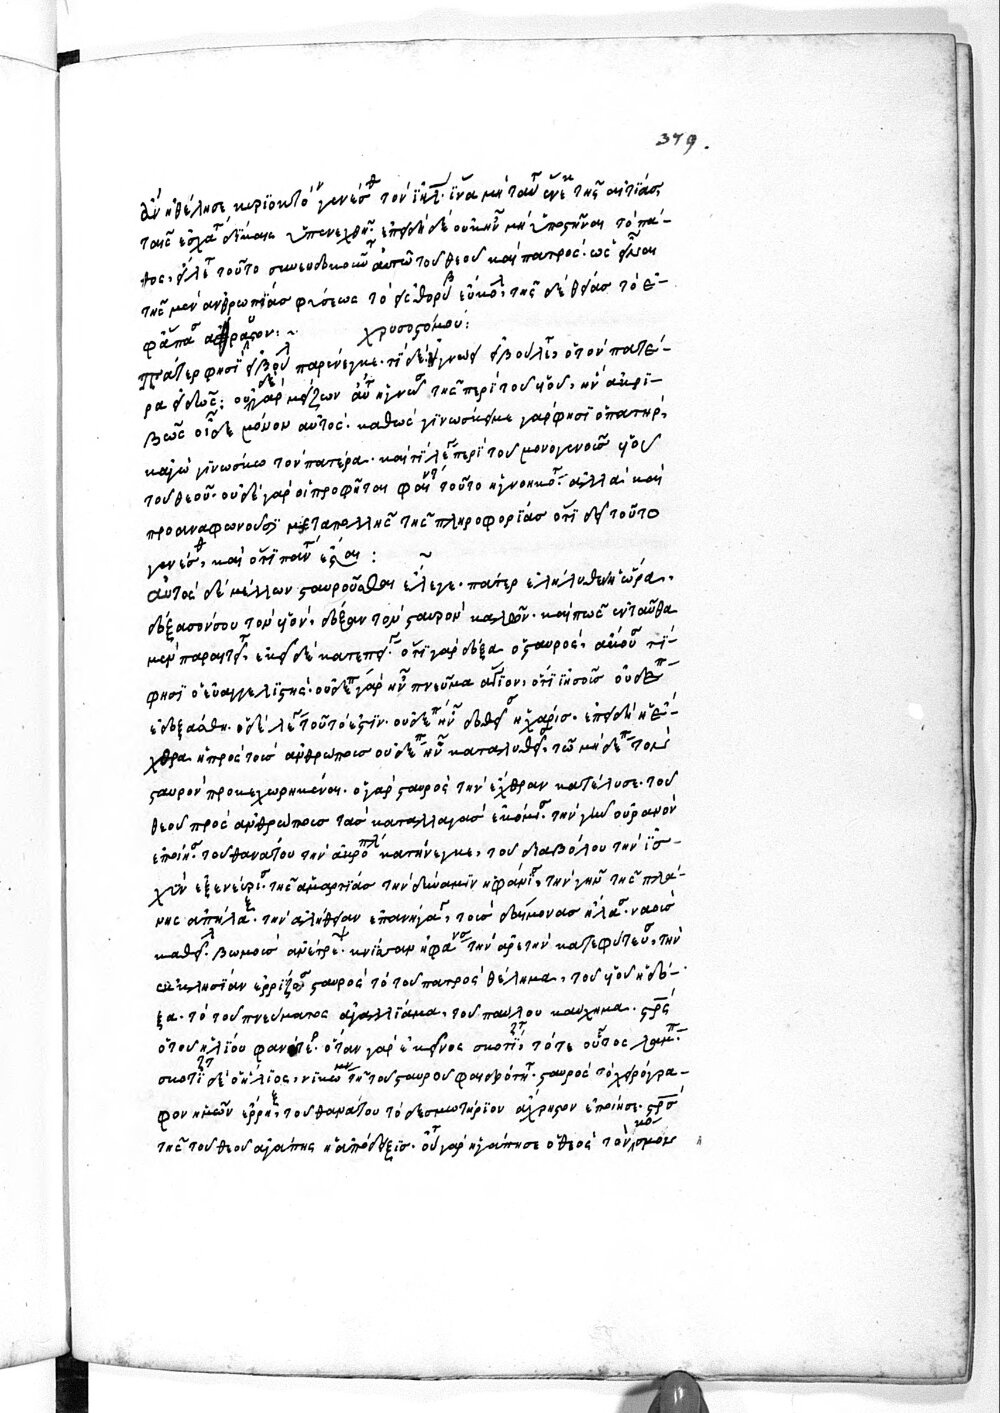 379.
ἂν ἠθέλησε κυριοκτό γενέσθ τὸν ἰηλ. ἵνα μὴ ταύ ἕνεκ τῆς αἰτίας
ταῖς ἐσχάτ δίκαις ὑπενεχθῆ. ἐπειδὴ δὲ οὐκ ἦν μὴ ὑποστῆναι τὸ πά-
θος, καὶ τοῦτο συνευδοκοῦν αὐτῶ τοῦ θεοῦ καὶ πατρός. ὡς εἶναι
τῆς μὲν ἀνθρωπείας φύσεως τὸ θορυβ εὔκολ, τῆς δὲ θείας τὸ
χρυσοστόμου:
πάτερ φησὶ εἰ βούλ παρένεγκε. τί δὲ ἠγνόει εἰ βούλεται, ὁ τὸν πατέ-
ρα εἰδώς; οὐδὲ γὰρ μείζων αὕτ ἡ γνῶσ τῆς περὶ τοῦ υἱοῦ, ἣν ἀκρι-
βῶς οἶδε μόνον αὐτός. καθὼς γινώσκει με γάρ φησι ὁ πατήρ,
καγὼ γινώσκω τὸν πατέρα. καὶ τί λέγ περὶ τοῦ μονογενοῦς υἱοῦ
τοῦ θεοῦ. οὐδὲ γὰρ οἱ προφῆται φαίντ τοῦτο ἠγνοηκότ. ἀλλὰ καὶ
προαναφωνοῦσι μετὰ πολλῆς τῆς πληροφορίας ὅτι δεῖ τοῦτο
γενέσθ, καὶ ὅτι πάντ ἔσται:
αὐτὸς δὲ μέλλων σταυροῦσθαι ἔλεγε. πάτερ ἐλήλυθεν ἡ ὥρα.
δόξασόν σου τὸν υἱόν. δόξαν τὸν σταυρὸν καλῶν. καὶ πῶς ἐνταῦθα
μὲν παραιτεῖτ, ἐκεῖ δὲ κατεπείγ. ὅτι γὰρ δόξα ὁ σταυρός, ἄκουσ τί
φησὶ ὁ εὐαγγελιστής. οὐδέπ γὰρ ἦν πνεῦμα ἅγιον, ὅτι ἰησοῦς οὐδέπ
ἐδοξάσθη. ὃ δὲ λέγ τοῦτό ἐστιν. οὐδέπ ἦν δοθεῖσ ἡ χάρις. ἐπειδὴ ἡ ἔ-
χθρα ἡ πρὸς τοὺς ἀνθρώπους οὐδέπ ἦν καταλυθεῖσ, τῶ μηδέπ τὸν
σταυρὸν προκεχωρηκέναι. ὁ γὰρ σταυρὸς τὴν ἔχθραν κατέλυσε. τοῦ
θεοῦ πρὸς ἀνθρώπους τὰς καταλλαγὰς ἐκόμισ. τὴν γῆν οὐρανὸν
ἐποίησ. τοῦ θανάτου τὴν ἀκρόπλ κατήνεγκε, τοῦ διαβόλου τὴν ἰσ-
χὺν ἐξενεύρισ. τῆς ἁμαρτίας τὴν δύναμιν ἠφάνισ, τὴν γῆν τῆς πλά-
νης ἀπήλλαξ. τὴν ἀλήθειαν ἐπανήγαγ, τοὺς δαίμονας ἤλασ. ναοὺς
καθεῖλ. βωμοὺς ἀνέτρεψ. κνίσσαν ἠφάνισ τὴν ἀρετὴν κατεφύτευσ, τὴν
ἐκκλησίαν ἐρρίζωσ σταυρὸς τὸ τοῦ πατρὸς θέλημα, τοῦ υἱοῦ ἡ δό-
ξα. τὸ τοῦ πνεύματος ἀγαλλίαμα, τοῦ παύλου καύχημα.
ὁ τοῦ ἡλίου φανότερ. ὅταν γὰρ ἐκεῖνος σκοτίζτ, τότε οὗτος λάμπ.
σκοτίζτ δὲ ὁ ἥλιος, νικώμν τῆ τοῦ σταυροῦ φαιδρότητ. σταυρὸς τὸ χειρόγρα-
φον ἡμῶν ἔρρηξ, τοῦ θανάτου τὸ δεσμωτήριον ἄχρηστον ἐποίησε.
τῆς τοῦ θεοῦ ἀγάπης ἡ ἀπόδειξις. οὕτ γὰρ ἠγάπησε ὁ θεὸς τὸν κόσμον